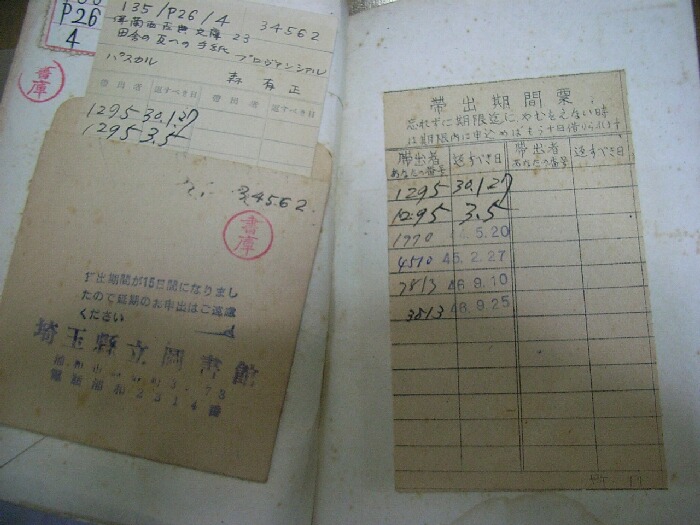 P26
4
書庫
135/P26/4 34562
田舎の友への手紙 プロヴァンシアル
パスカル
森有正
帯出者 返すべき日 帯出者 返すべき日
1295 30.1.27
1295 3.5
34562
書庫
出期間が15日間になりまし
たので延期のお申出はご遠慮
ください
埼玉縣立圖書館
帯出期間票
忘れずに期限迄に、やむをえない時
は期限内に申込めばもう十日借りられます
帯出者 あなたの番号 返すべき日 帯出者 あなたの番号 返すべき日
1295 30.1.27
1295 3.5
1970 5.20
4510 45.2.27
3813 46.9.10
3813 46.9.25